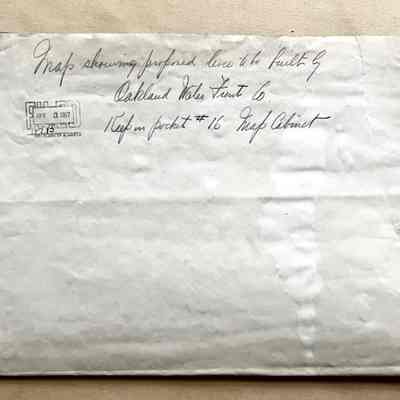 Map showing proposed line to be built by
Oakland Water Front Co
Keep in pocket #16 Map Cabinet